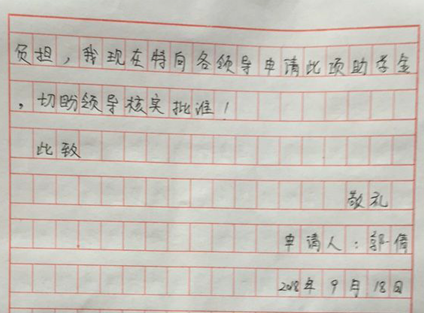 负担，我现在特向各领导申请此项助学金
，切盼领导核实批准！
此致
敬礼
申请人：郭倩
2018年9月18日